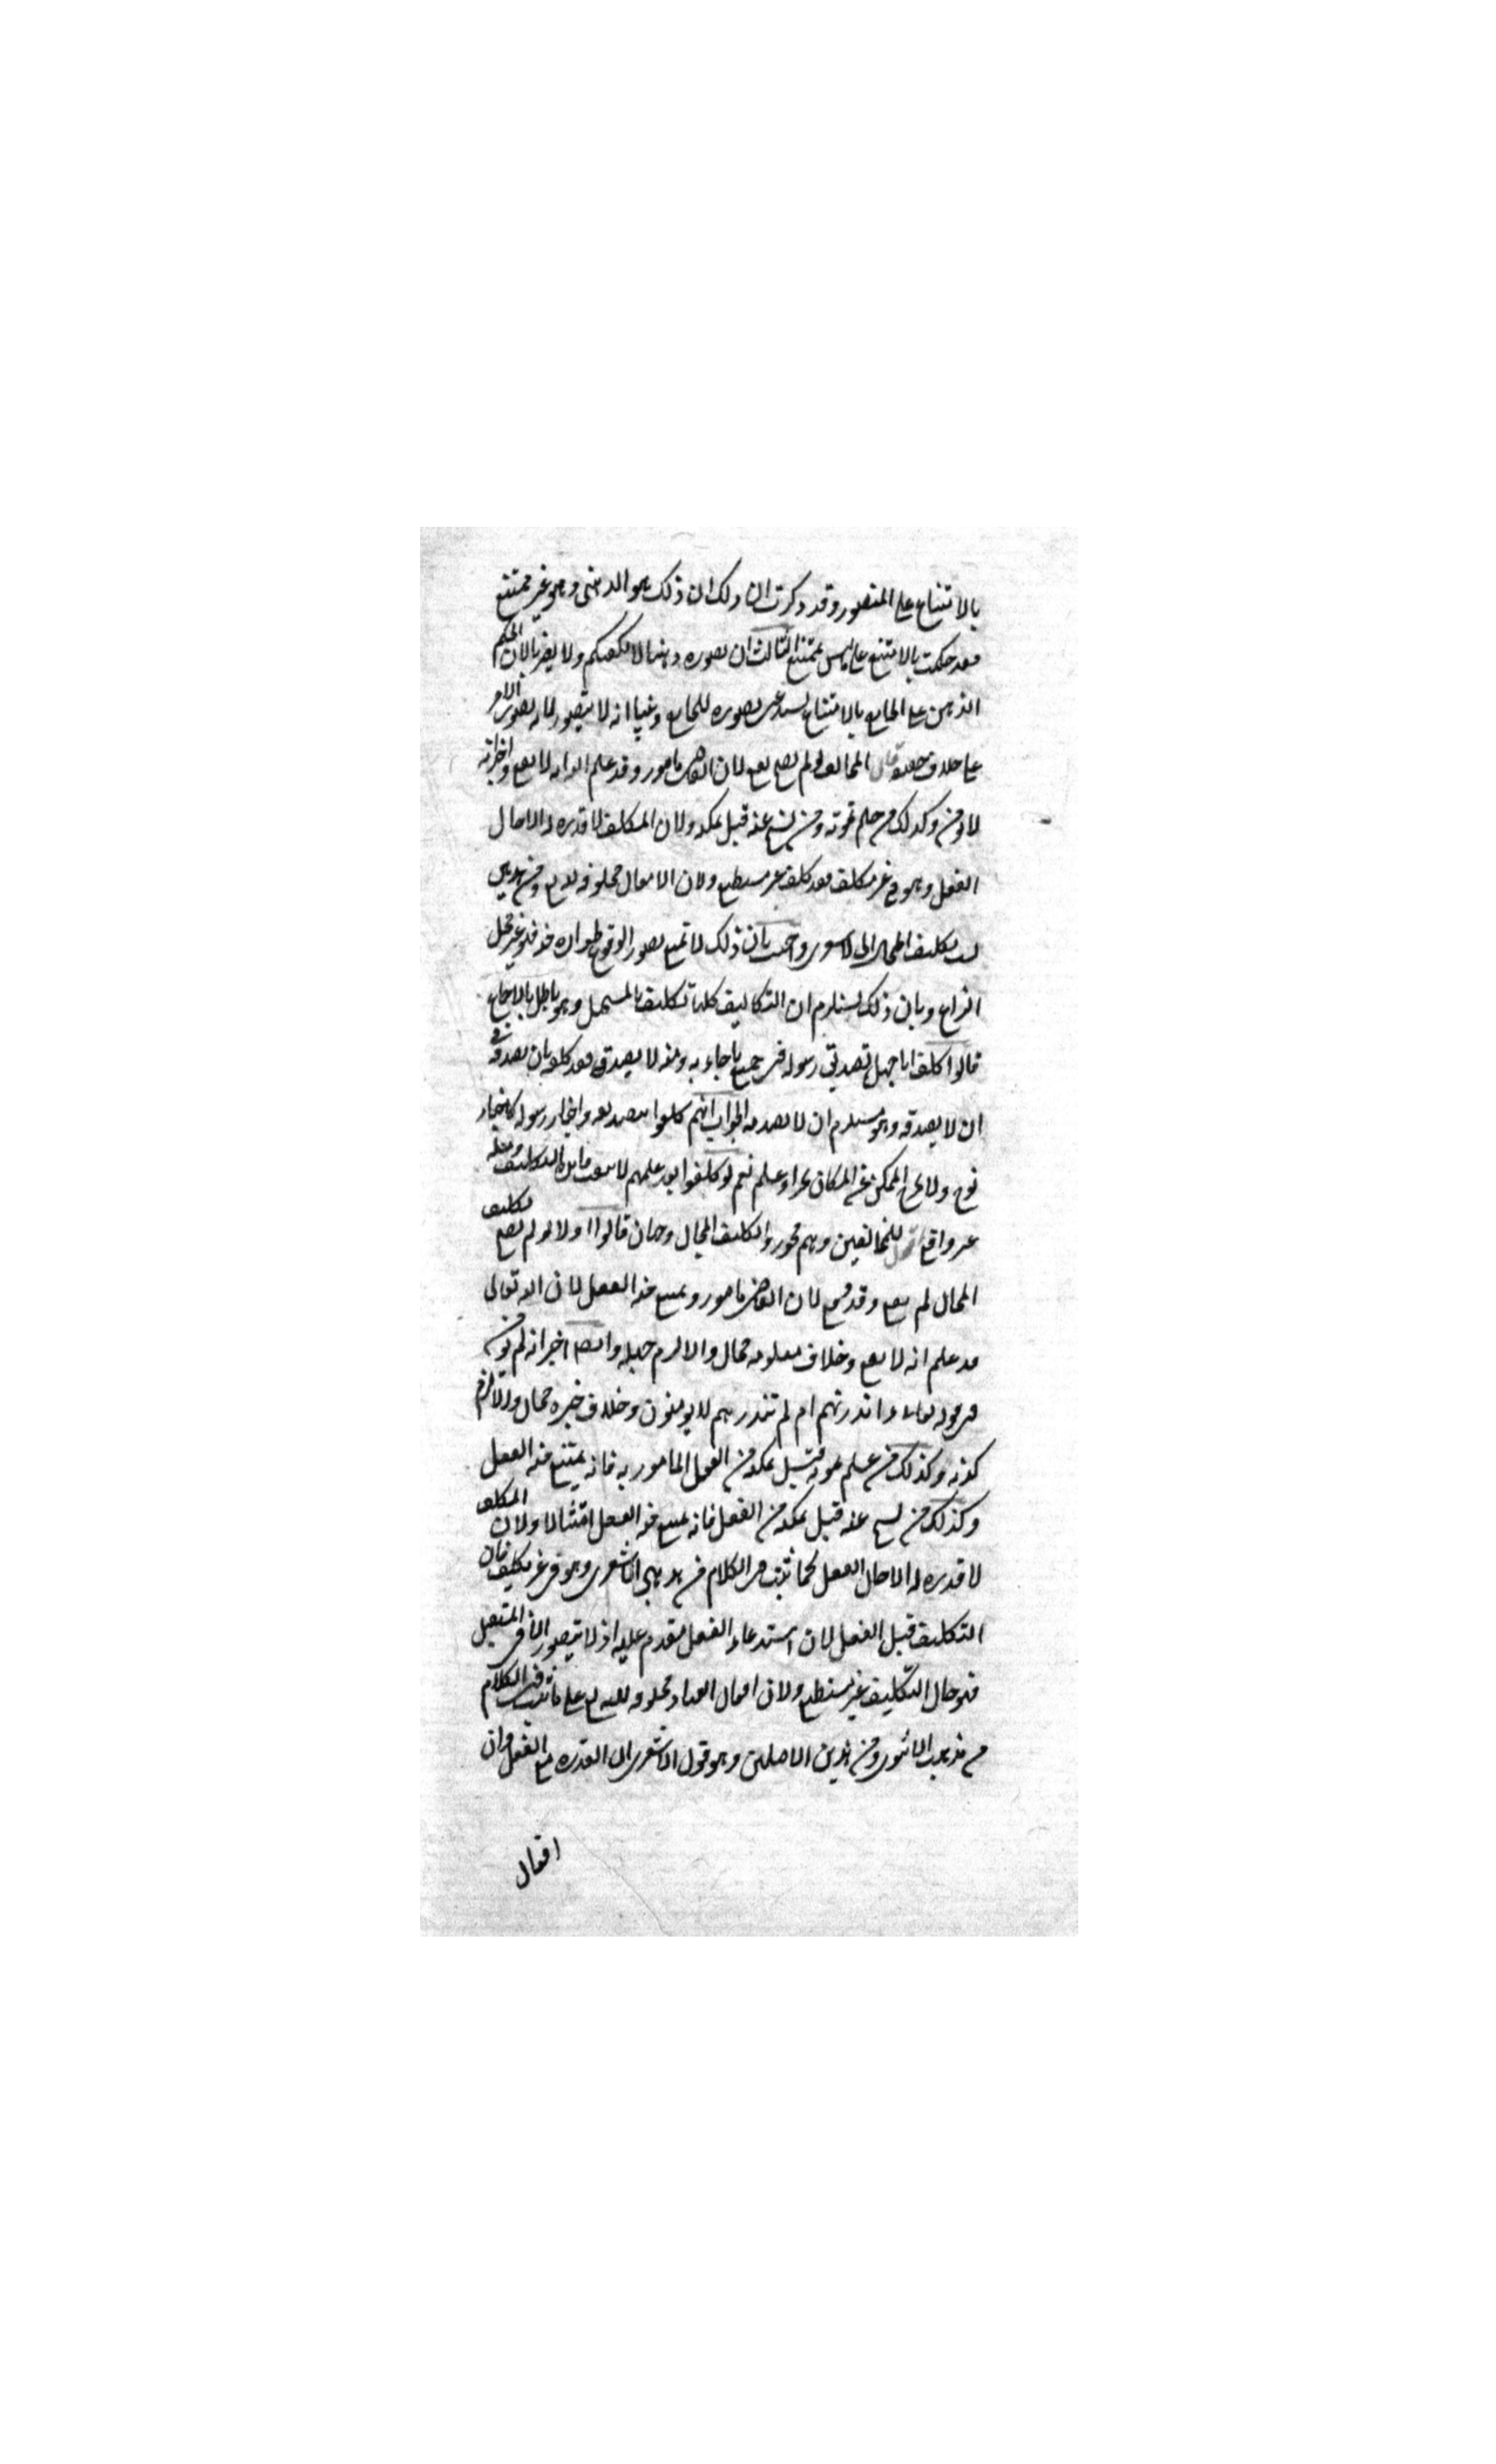 بالامتناع على المتصور وقد ذكرت ان ذلك ان ذلك هو الذهني وهو غير ممتنع
فقد حكمت بالامتنع على ما ليس بممتنع الثالث ان تصوره ذهنا لا يكفيكم ولا يضرنا لان الحكم
الذهن على الجامع بالامتناع يستدعي تصوره للجامع وغينا انه لا يتصور لما به تصور الامر
على خلاف حقيقته قال المخالف لو لم يصح لم يقع لان العاصي مامور وقد علم الله انه لا يقع واخبر انه
لا يؤمن وكذلك من علم بموته ومن نسخ عنه قبل تمكنه ولان المكلف لا قدرة له الا حال
الفعل وهو ح غير مكلف فقد كلف غير مستطيع ولان الافعال مخلوقة لله تع ومن هذين
نسب تكليف المحال الى الاشعري واجيب بان ذلك لا يمنع تصور الوقوع لجوازه منه فهو غير محل
النزاع وبان ذلك يستلزم ان التكاليف كلها تكليف بالمستحيل وهو باطل بالاجماع
قالوا كلف ابا جهل تصديق رسوله في جميع ما جاء به ومنه لا يصدقه فقد كلفه بان يصدقه في
ان لا يصدقه وهو يستلزم ان لا يصدقه الجواب انهم كلفوا بتصديقه واخبار رسوله كاخبار
نوح ولا يخرج الممكن عن الامكان بخبر او علم نعم لو كلفوا بعد علمهم لانتفت فائدة التكليف ومثله
غير واقع اقول للمخالفين وهم مجوزوا تكليف المحال وجهان قالوا اولا لو لم يصح تكليف
المحال لم يقع وقد وقع لان العاصي مامور ويمتنع منه الفعل لان الله تعالى
قد علم انه لا يقع وخلاف معلومه محال والا لزم جهله وايضا اخبر انه لم يؤمن
في قوله تعالى ءانذرتهم ام لم تنذرهم لا يؤمنون وخلاف خبره محال والا لزم
كذبه وكذلك من علم بموته قبل تمكنه من الفعل المامور به فانه يمتنع منه الفعل
وكذلك من نسخ عنه قبل تمكنه من الفعل فانه يمتنع منه الفعل امتثالا ولان المكلف
لا قدرة له الا حال الفعل كما ثبت في الكلام من مذهب الاشعري وهو في غير تكليف فان
التكليف قبل الفعل لان استدعاء الفعل متقدم عليه اذ لا يتصور الا في المستقبل
فهو حال التكليف غير مستطيع ولان افعال العباد مخلوقة لله تع على ما ثبت في الكلام
من مذهب الاشعري ومن هذين الاصلين وهو قول الاشعري ان القدرة مع الفعل وان
افعال